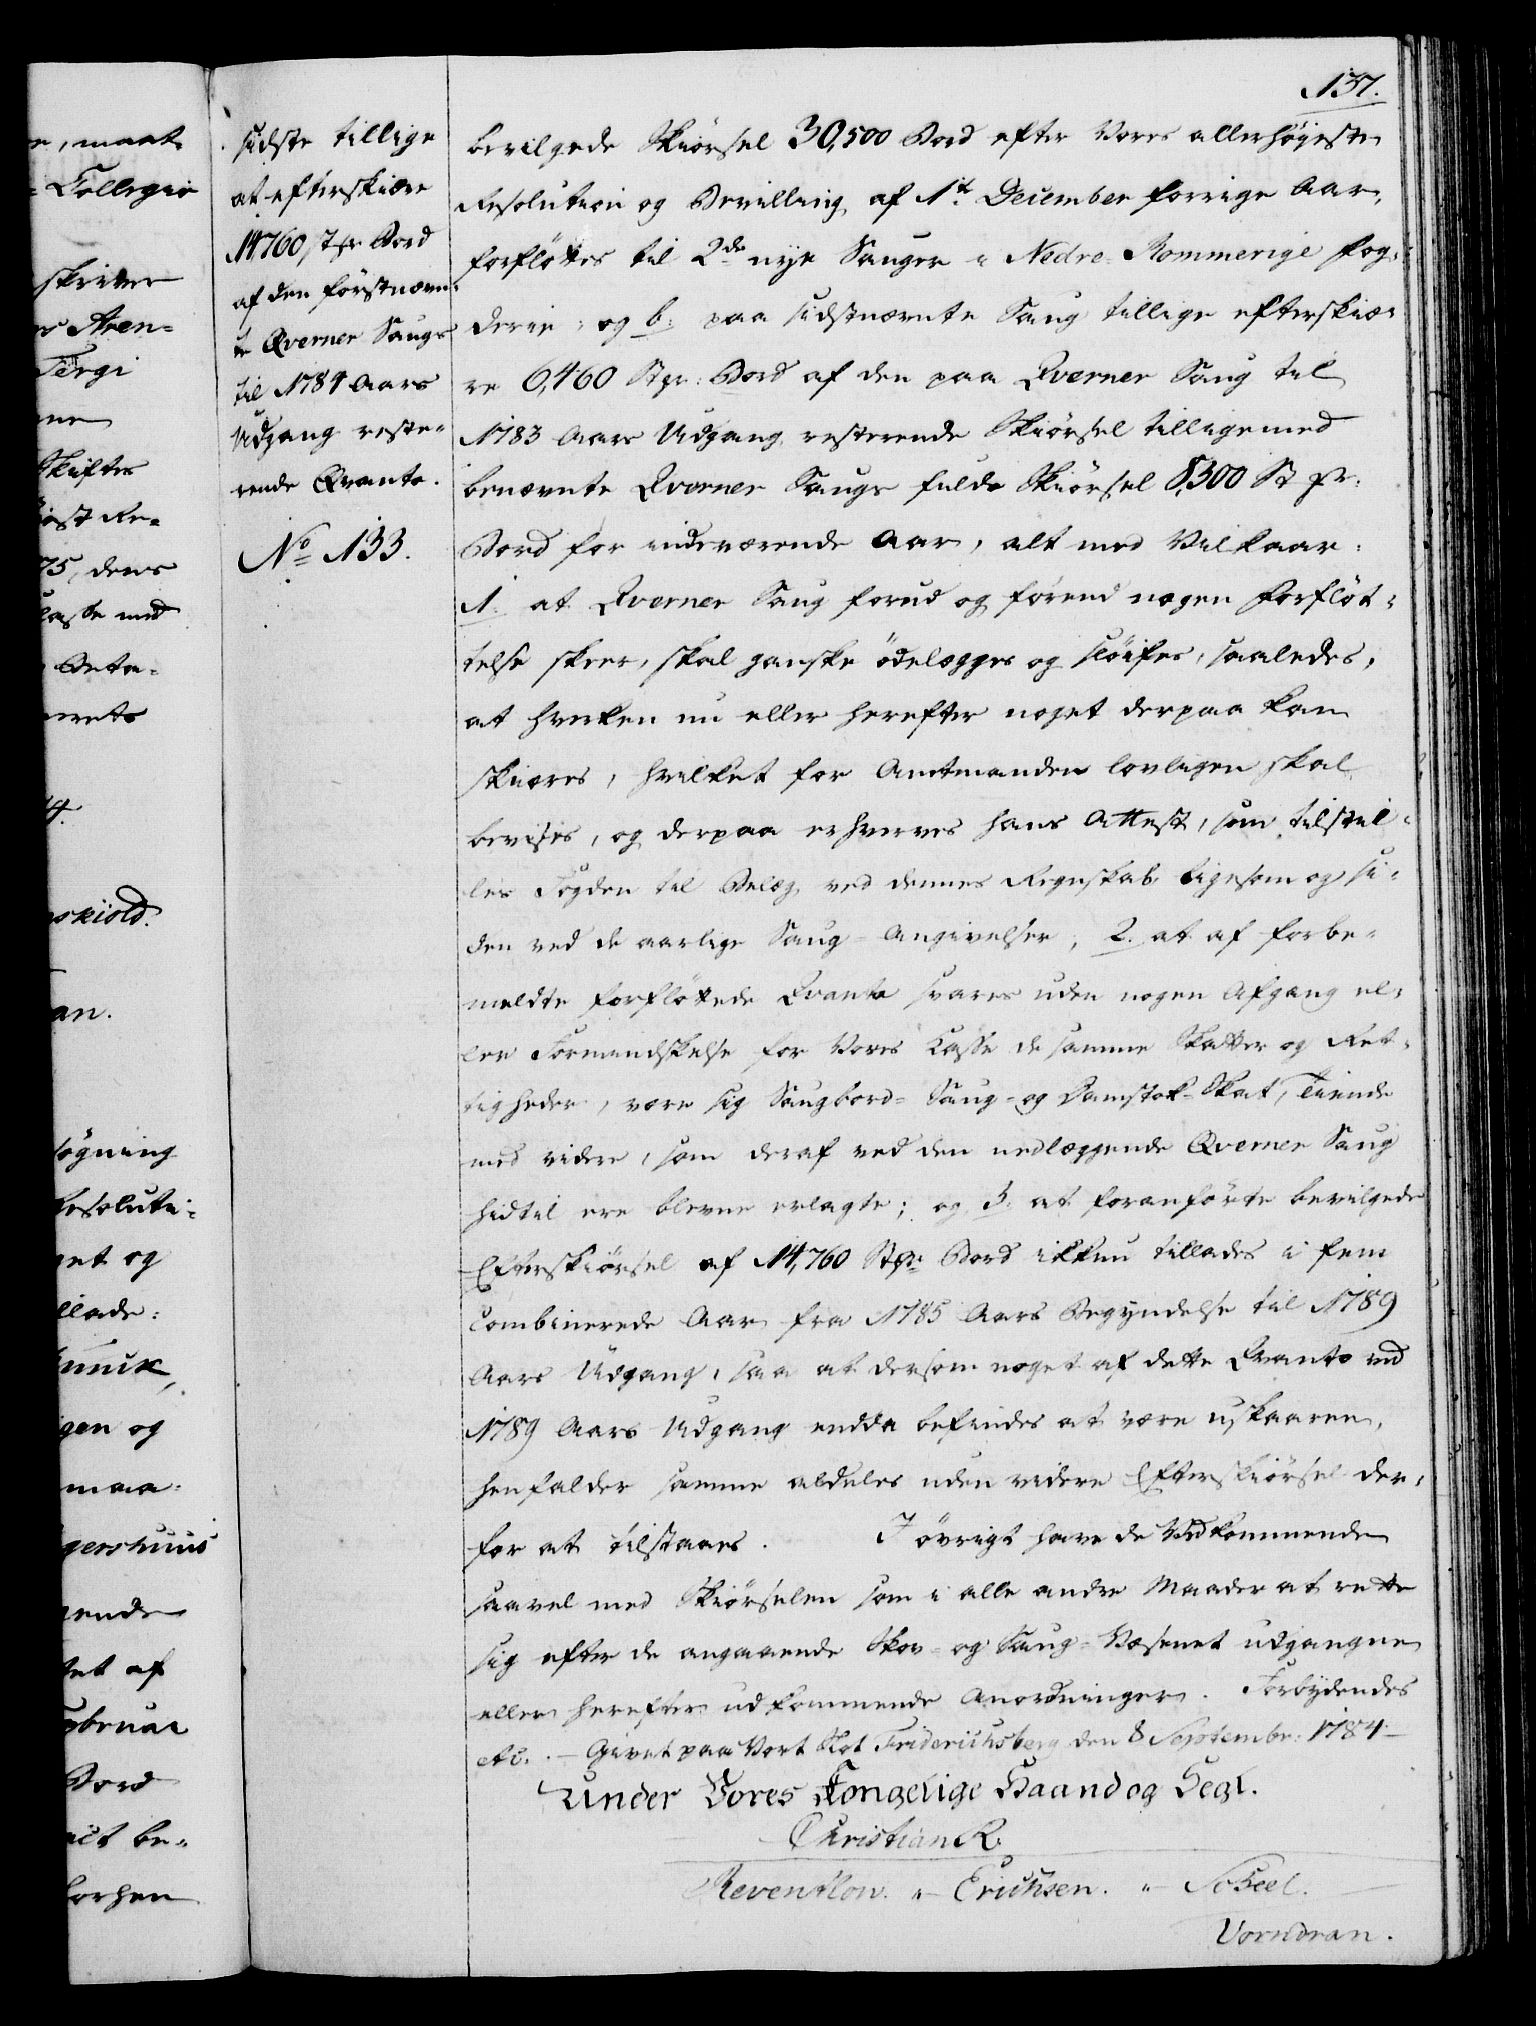 137.
sidste tillige
at efterskiære
14760, St pr Bord
af den förstnævn-
te Qverner Saugs
til 1784 Aars
Udgang reste-
rende Qvanto.
No 133.
bevilgede Skiörsel 30,500 Bord efter Vores allerhöieste
Resolution og Bevilling af 1te December forrige Aar,
forflöttes til 2de nye Sauger i Nedre-Rommerige Fog-
derie, og b. paa sidstnævnte Saug tillige efterskiæ-
re 6,460 St pr: Bord af den paa Qverner Saug til
1783 Aars Udgang resterende Skiörsel tilligemed
benævnte Qverner Saugs fulde Skiörsel 8,300 St pr:
Bord for indeværende Aar, alt med Vilkaar:
1. at Qverner Saug forud og förend nogen Forflöt-
telse skeer, skal ganske ödelegges og slöifes, saaledes,
at hverken nu eller herefter noget derpaa kan
skiæres, hvilket for Amtmanden lovligen skal
bevises, og derpaa erhverves hans Attest, som tilstil-
les Fogden til Belæg ved dennes Regnskab ligesom og si-
den ved de aarlige Saug-Angivelser; 2. at af forbe-
meldte forflöttede Qvanta svares uden nogen Afgang el-
ler Formindskelse for Vores Casse de samme Skatter og Ret-
tigheder, være sig Saugbord- Saug- og Damstok-Skat, Tiende
med videre, som deraf ved den nedlæggende Qverner Saug
hidtil ere blevne erlagte; og 3. at foranförte bevilgede
Efterskiörsel af 14,760 St pr. Bord ikkun tillades i fem
combinerede Aar fra 1785 Aars Begyndelse til 1789
Aars Udgang, saa at dersom noget af dette Qvanto ved
1789 Aars Udgang endda befindes at være uskaaren,
henfalder samme aldeles uden videre Efterskiörsel der-
for at tilstaaes. I övrigt have de Vedkommende
saavel med Skiörselen som i alle andre Maader at rette
sig efter de angaaende Skov- og Saug-Væsenet udgangne
eller herefter udkommende Anordninger. Forbydendes
etc. - Givet paa Vort Slot Friderichsberg den 8 Septembr: 1784 -
Under Vores Kongelige Haand og Segl.
Christian R.
Reventlow. - Erichsen. - Scheel.
Vorndran.